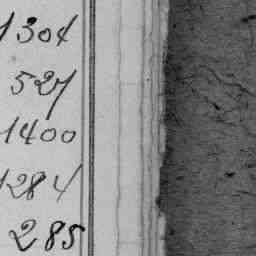 1304
527
1400
1284
285